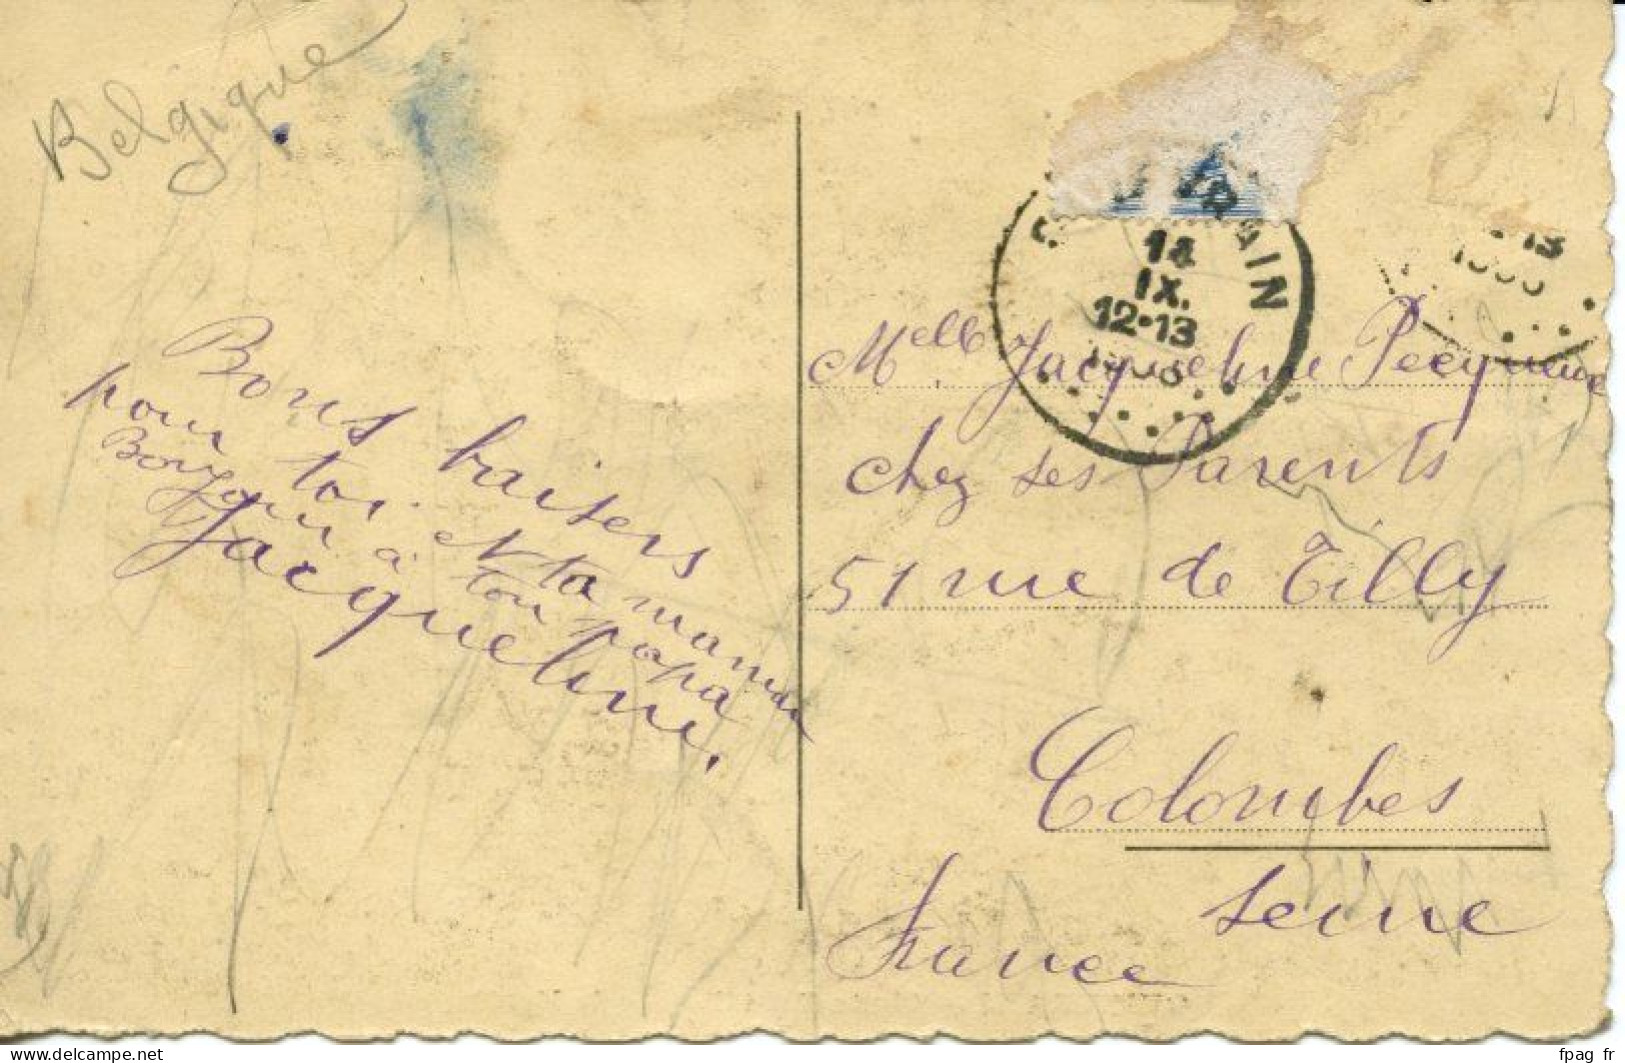 Belgique
Bons baisers
pour toi et ta maman
Bonjour à ton papa
Jacqueline.
18
IX.
12-13
13
Melle Jacqueline
chez ses Parents
51 rue de Tilly
Colombes
Seine
France
delcampe.net
fpag_fr